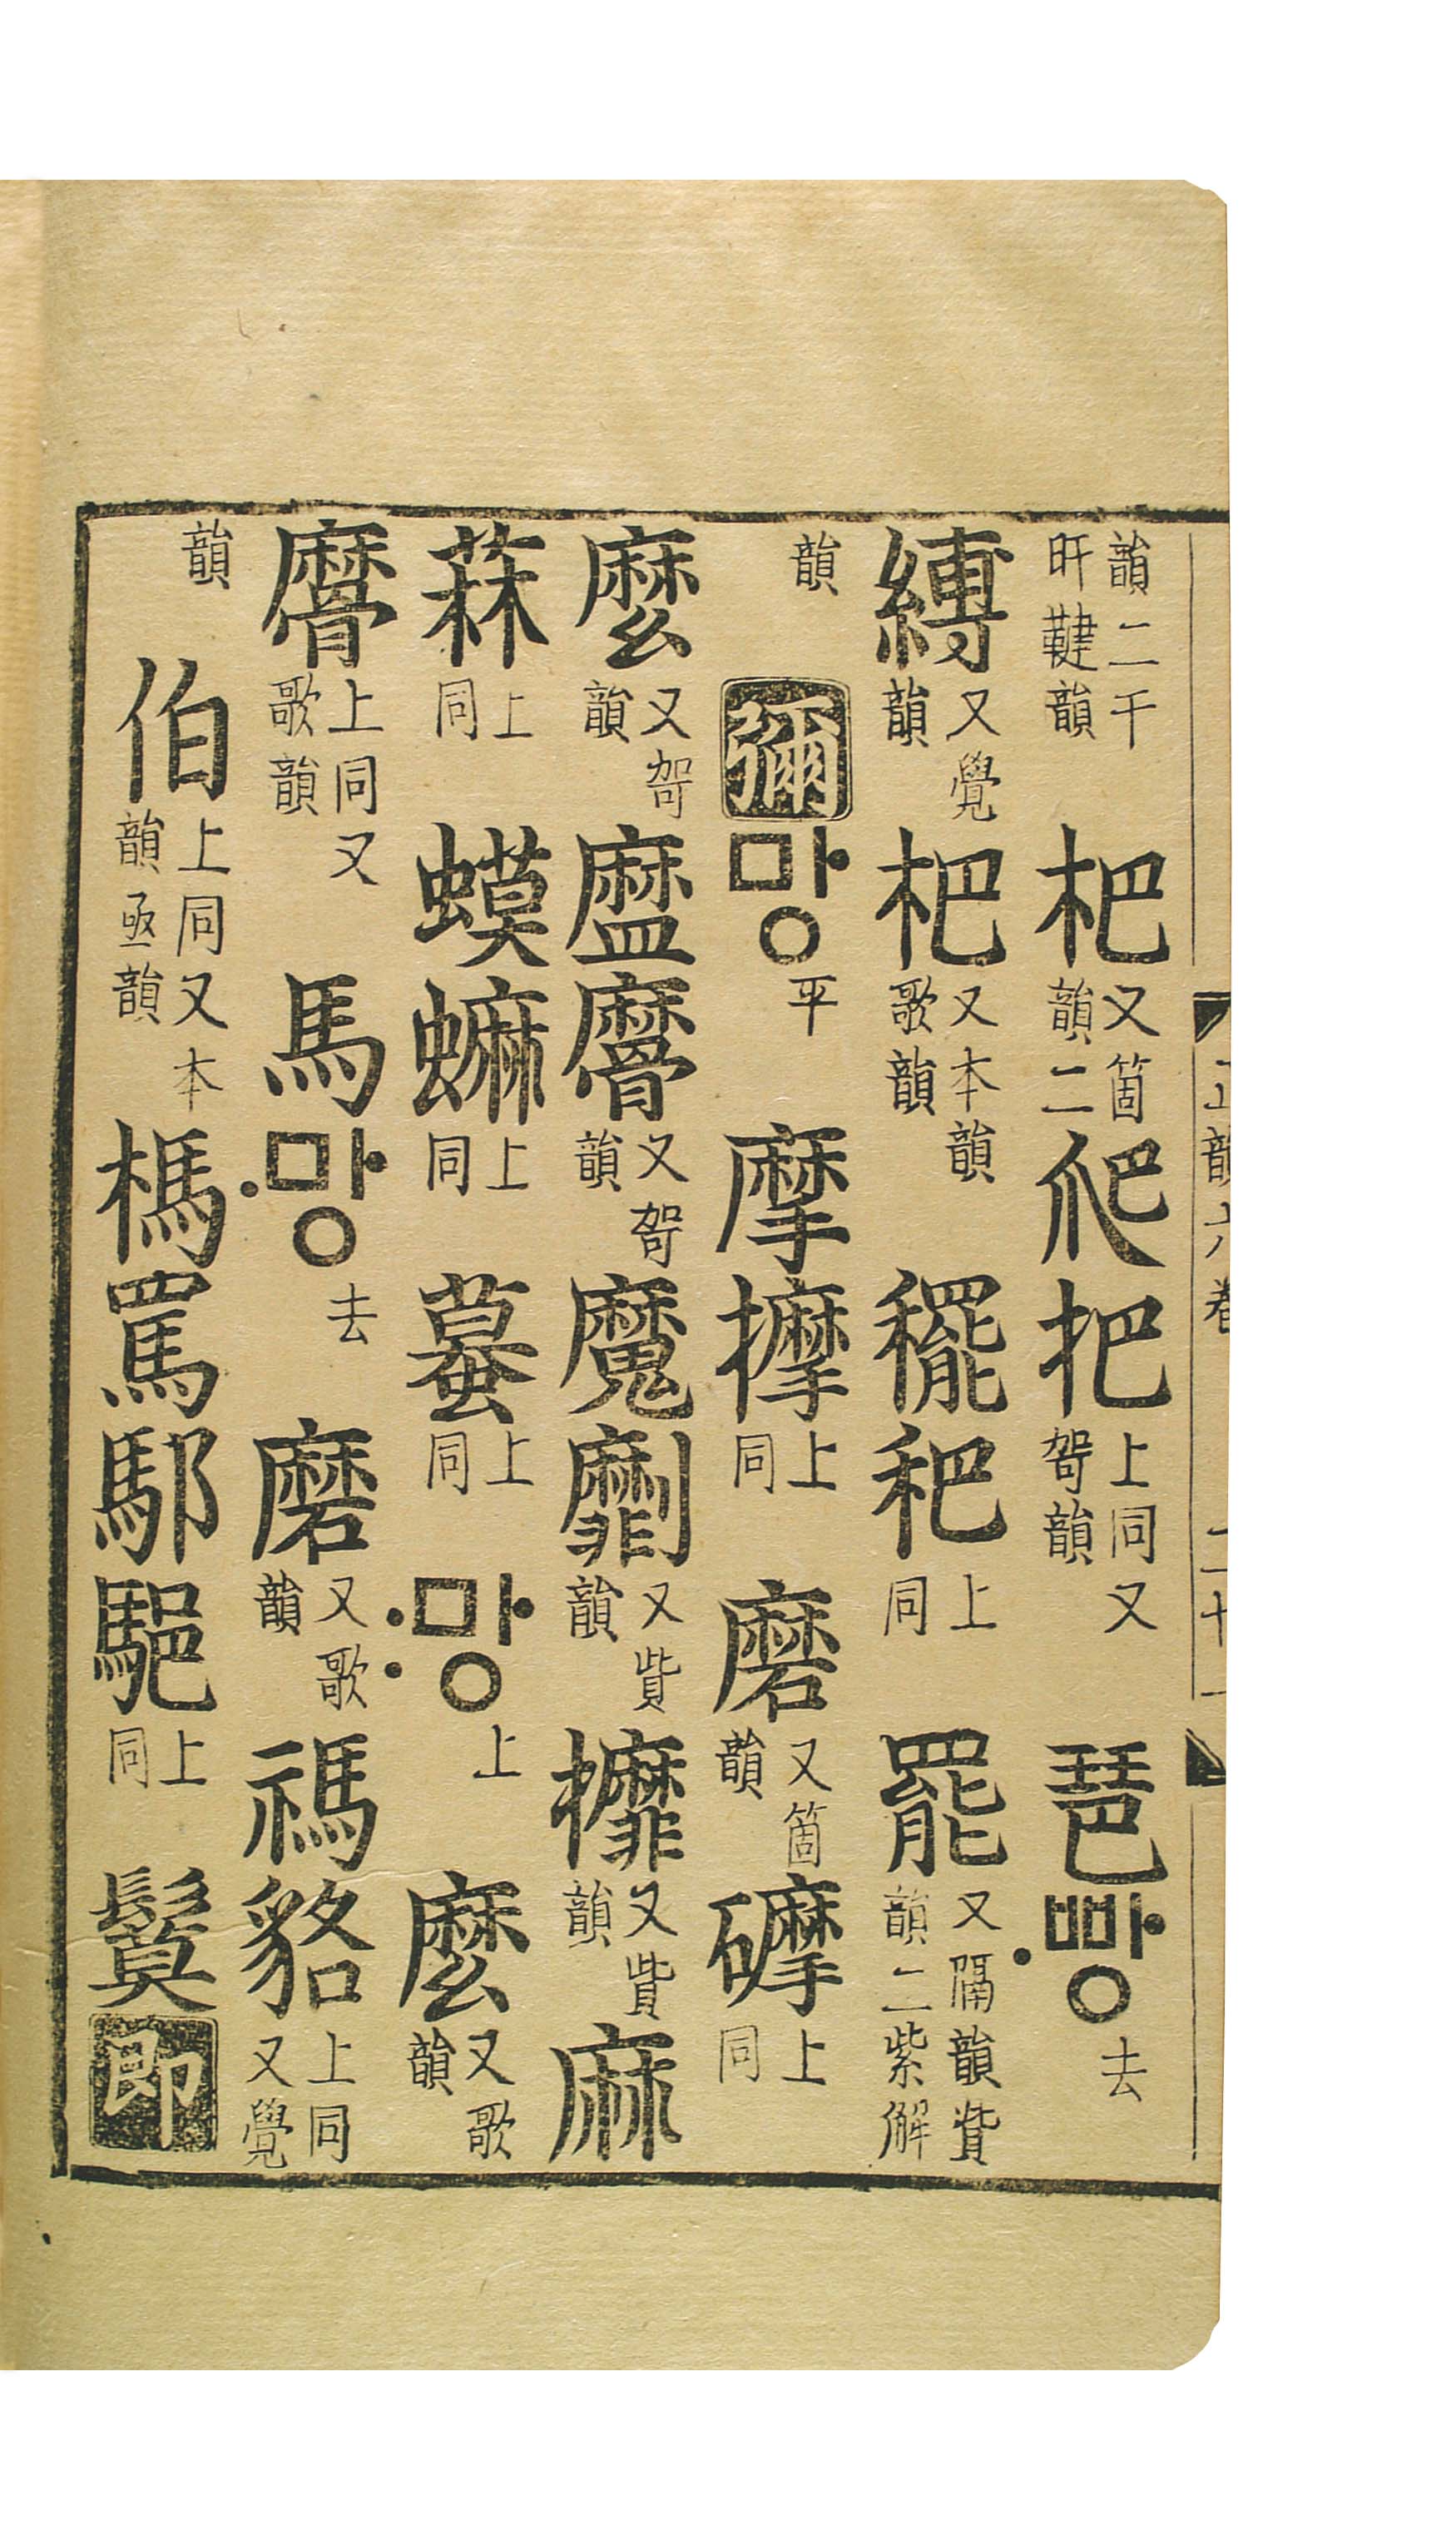 韻二干旰鞬韻 杷 又箇韻二 爬 把 上同又哿韻 琶 〮빵 去
縛 又覺韻 杷 又本韻歌韻 䆉 上同 罷 又隔韻貲韻二紫解
韻 彌 망 平 摩 擵 上同 磨 又箇韻 䃺 上同
麼 又哿韻 䯢 又哿韻 魔 劘 又貲韻 攠 又貲韻 麻
上同 蟆 䗫 上同 蟇 上同 〯망 上 麼 又歌韻
䯢 上同又歌韻 馬 〮망 去 磨 又歌韻 禡 貉 上同又覺
韻 伯 上同又本韻亟韻 榪 罵 上同 即
正韻六卷 二十一